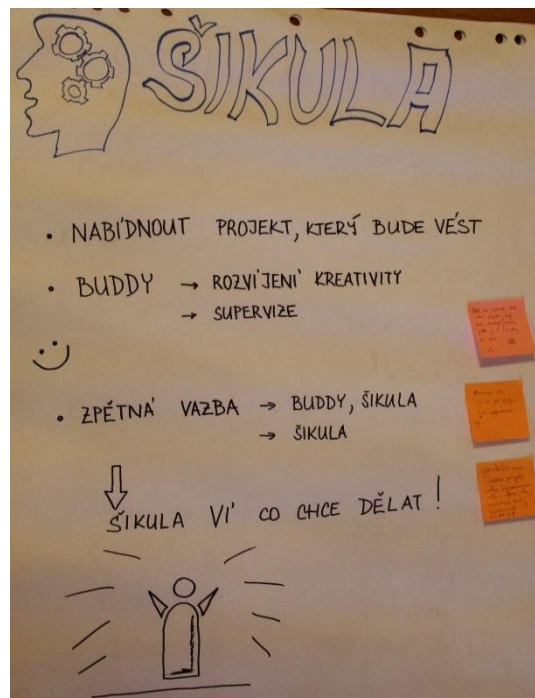 ŠIKULA
• NABÍDNOUT PROJEKT, KTERÝ BUDE VÉST
• BUDDY → ROZVÍJENÍ KREATIVITY
→ SUPERVIZE
• ZPĚTNÁ VAZBA → BUDDY, ŠIKULA
→ ŠIKULA
ŠIKULA VÍ CO CHCE DĚLAT!